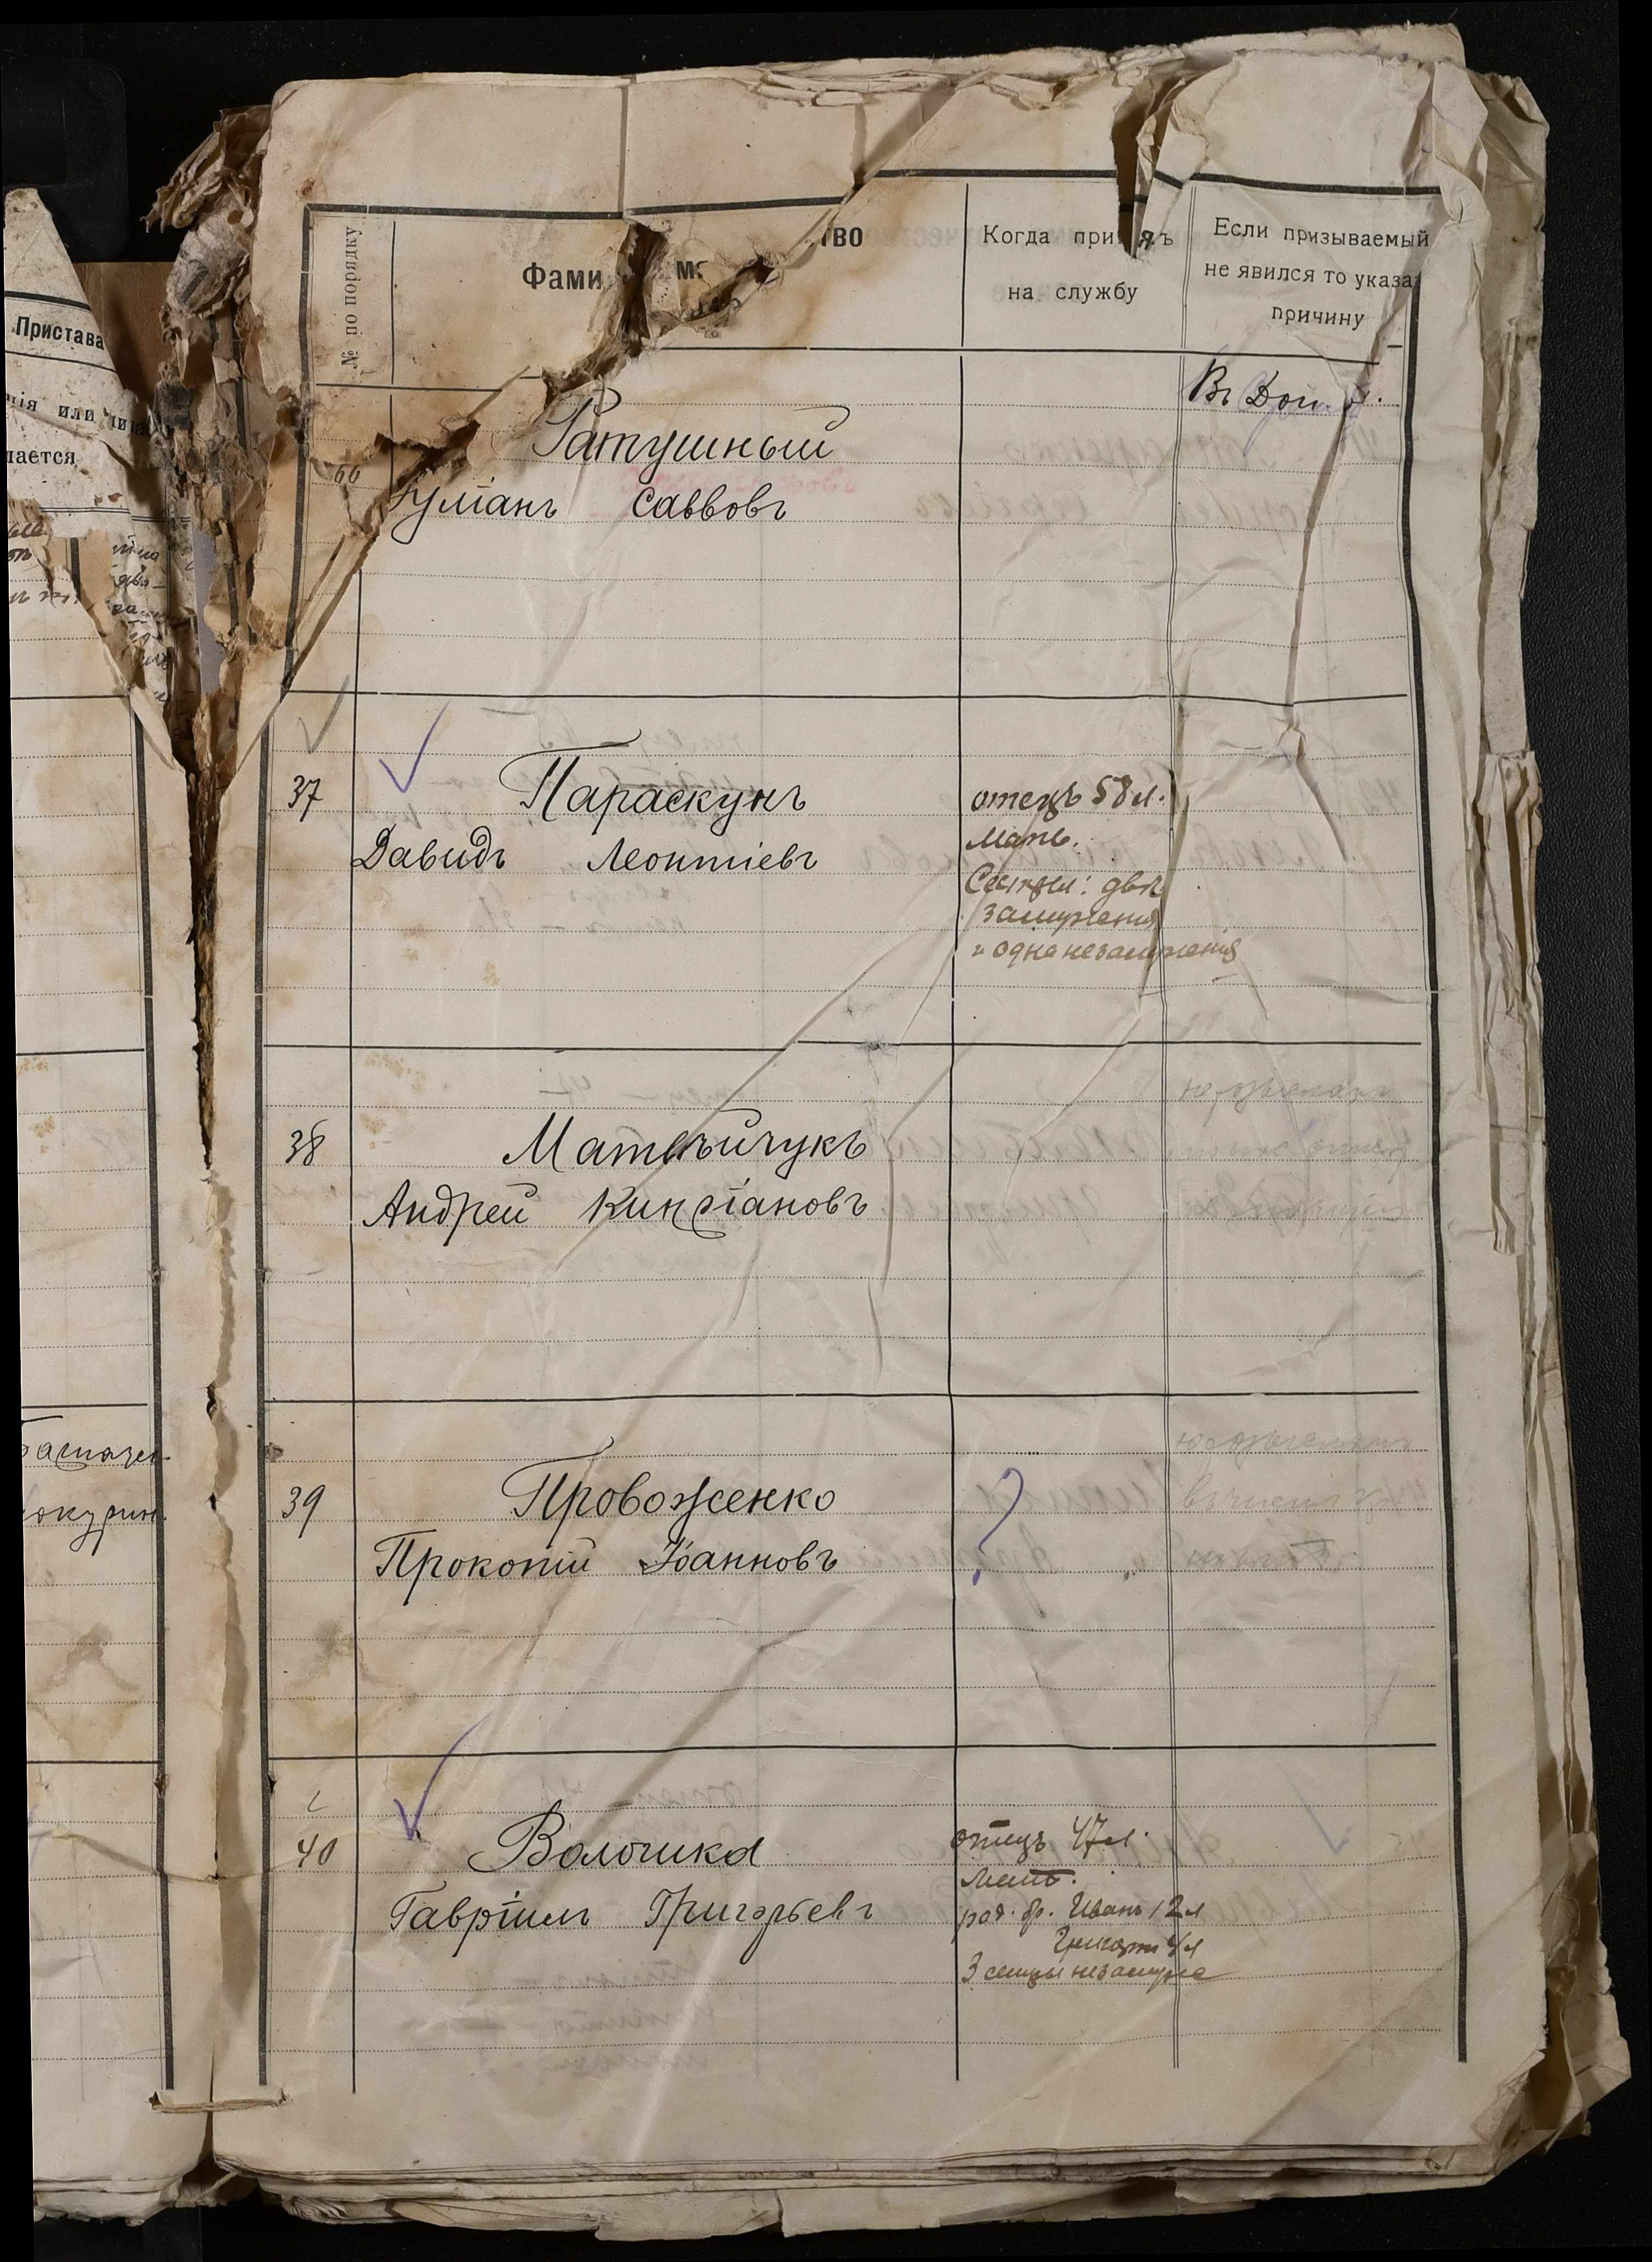 Пристава
нія или
лается
№ по порядку
Фами
тво
Когда принятъ
на службу
Если призываемый
не явился то указа
причину
Въ
Ратушный
Іуліанъ Саввовъ
37
Параскунъ
Давидъ Леонтіевъ
отецъ 58 л.
Мать.
Сестры: двѣ
замужнія
и одна незамужняя
38
Матвѣйчукъ
Андрей
39
Провоженко
Прокопій Іоанновъ
?
40
Волошка
Гавріилъ Григорьевъ
отецъ 47 л.
Мать.
род. бр. Иванъ 12 л
Григорій 4 л
3 сестры незамужне